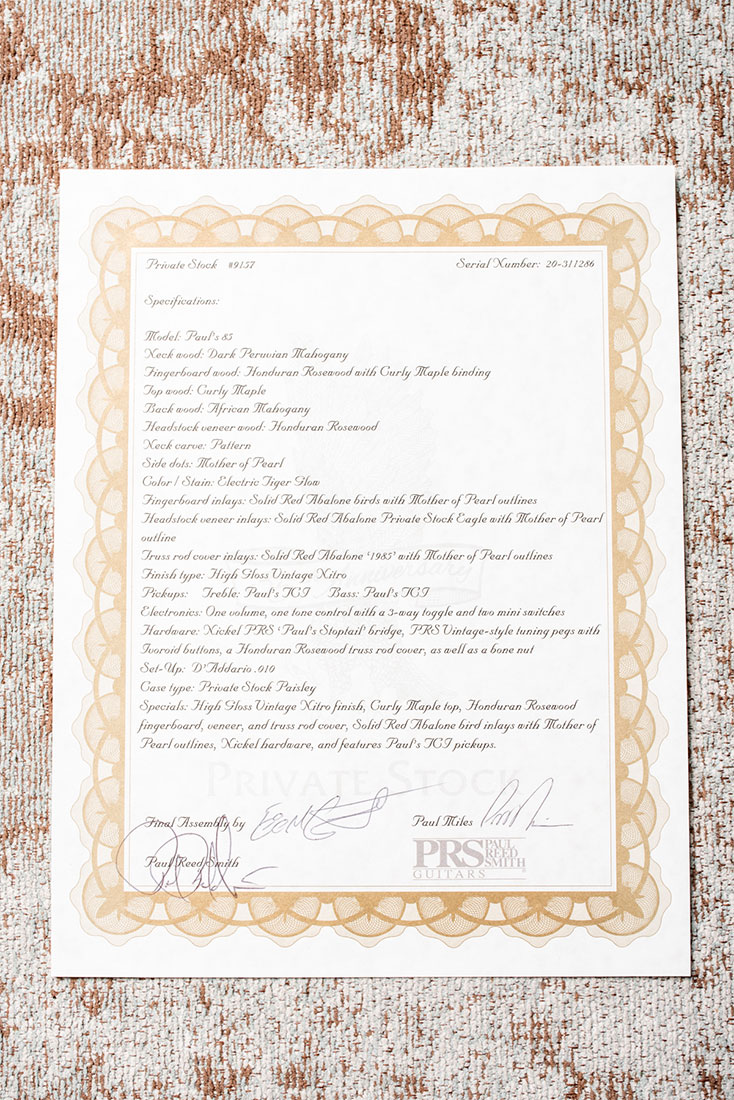 Private Stock #9157 Serial Number: 20-311286
Specifications:
Model: Paul's 85
Neck wood: Dark Peruvian Mahogany
Fingerboard wood: Honduran Rosewood with Curly Maple binding
Top wood: Curly Maple
Back wood: African Mahogany
Headstock veneer wood: Honduran Rosewood
Neck carve: Pattern
Side dots: Mother of Pearl
Color / Stain: Electric Tiger Glow
Fingerboard inlays: Solid Red Abalone birds with Mother of Pearl outlines
Headstock veneer inlays: Solid Red Abalone Private Stock Eagle with Mother of Pearl
outline
Truss rod cover inlays: Solid Red Abalone '1985' with Mother of Pearl outlines
Finish type: High Gloss Vintage Nitro
Pickups: Treble: Paul's TCI Bass: Paul's TCI
Electronics: One volume, one tone control with a 3-way toggle and two mini switches
Hardware: Nickel PRS 'Paul's Stoptail' bridge, PRS Vintage-style tuning pegs with
Ivoroid buttons, a Honduran Rosewood truss rod cover, as well as a bone nut
Set-Up: D'Addario .010
Case type: Private Stock Paisley
Specials: High Gloss Vintage Nitro finish, Curly Maple top, Honduran Rosewood
fingerboard, veneer, and truss rod cover, Solid Red Abalone bird inlays with Mother of
Pearl outlines, Nickel hardware, and features Paul's TCI pickups.
PRIVATE STOCK
Final Assembly by Paul Miles
Paul Reed Smith
PRS PAUL REED SMITH
GUITARS